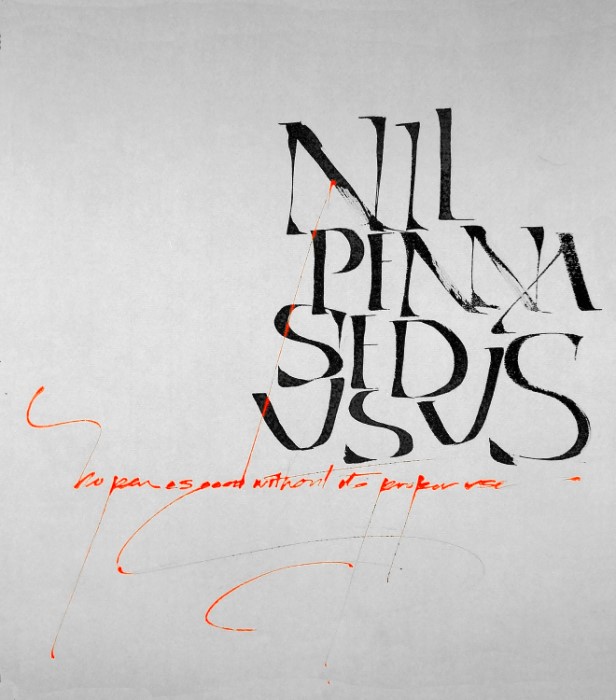 NIL
PENNA
SED
USUS
No pen is good without its proper use